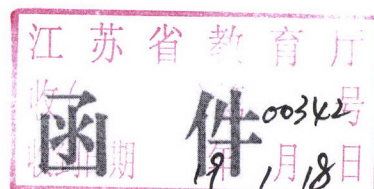 江苏省教育厅
收 00342号
函件
收 期 19年1月18日